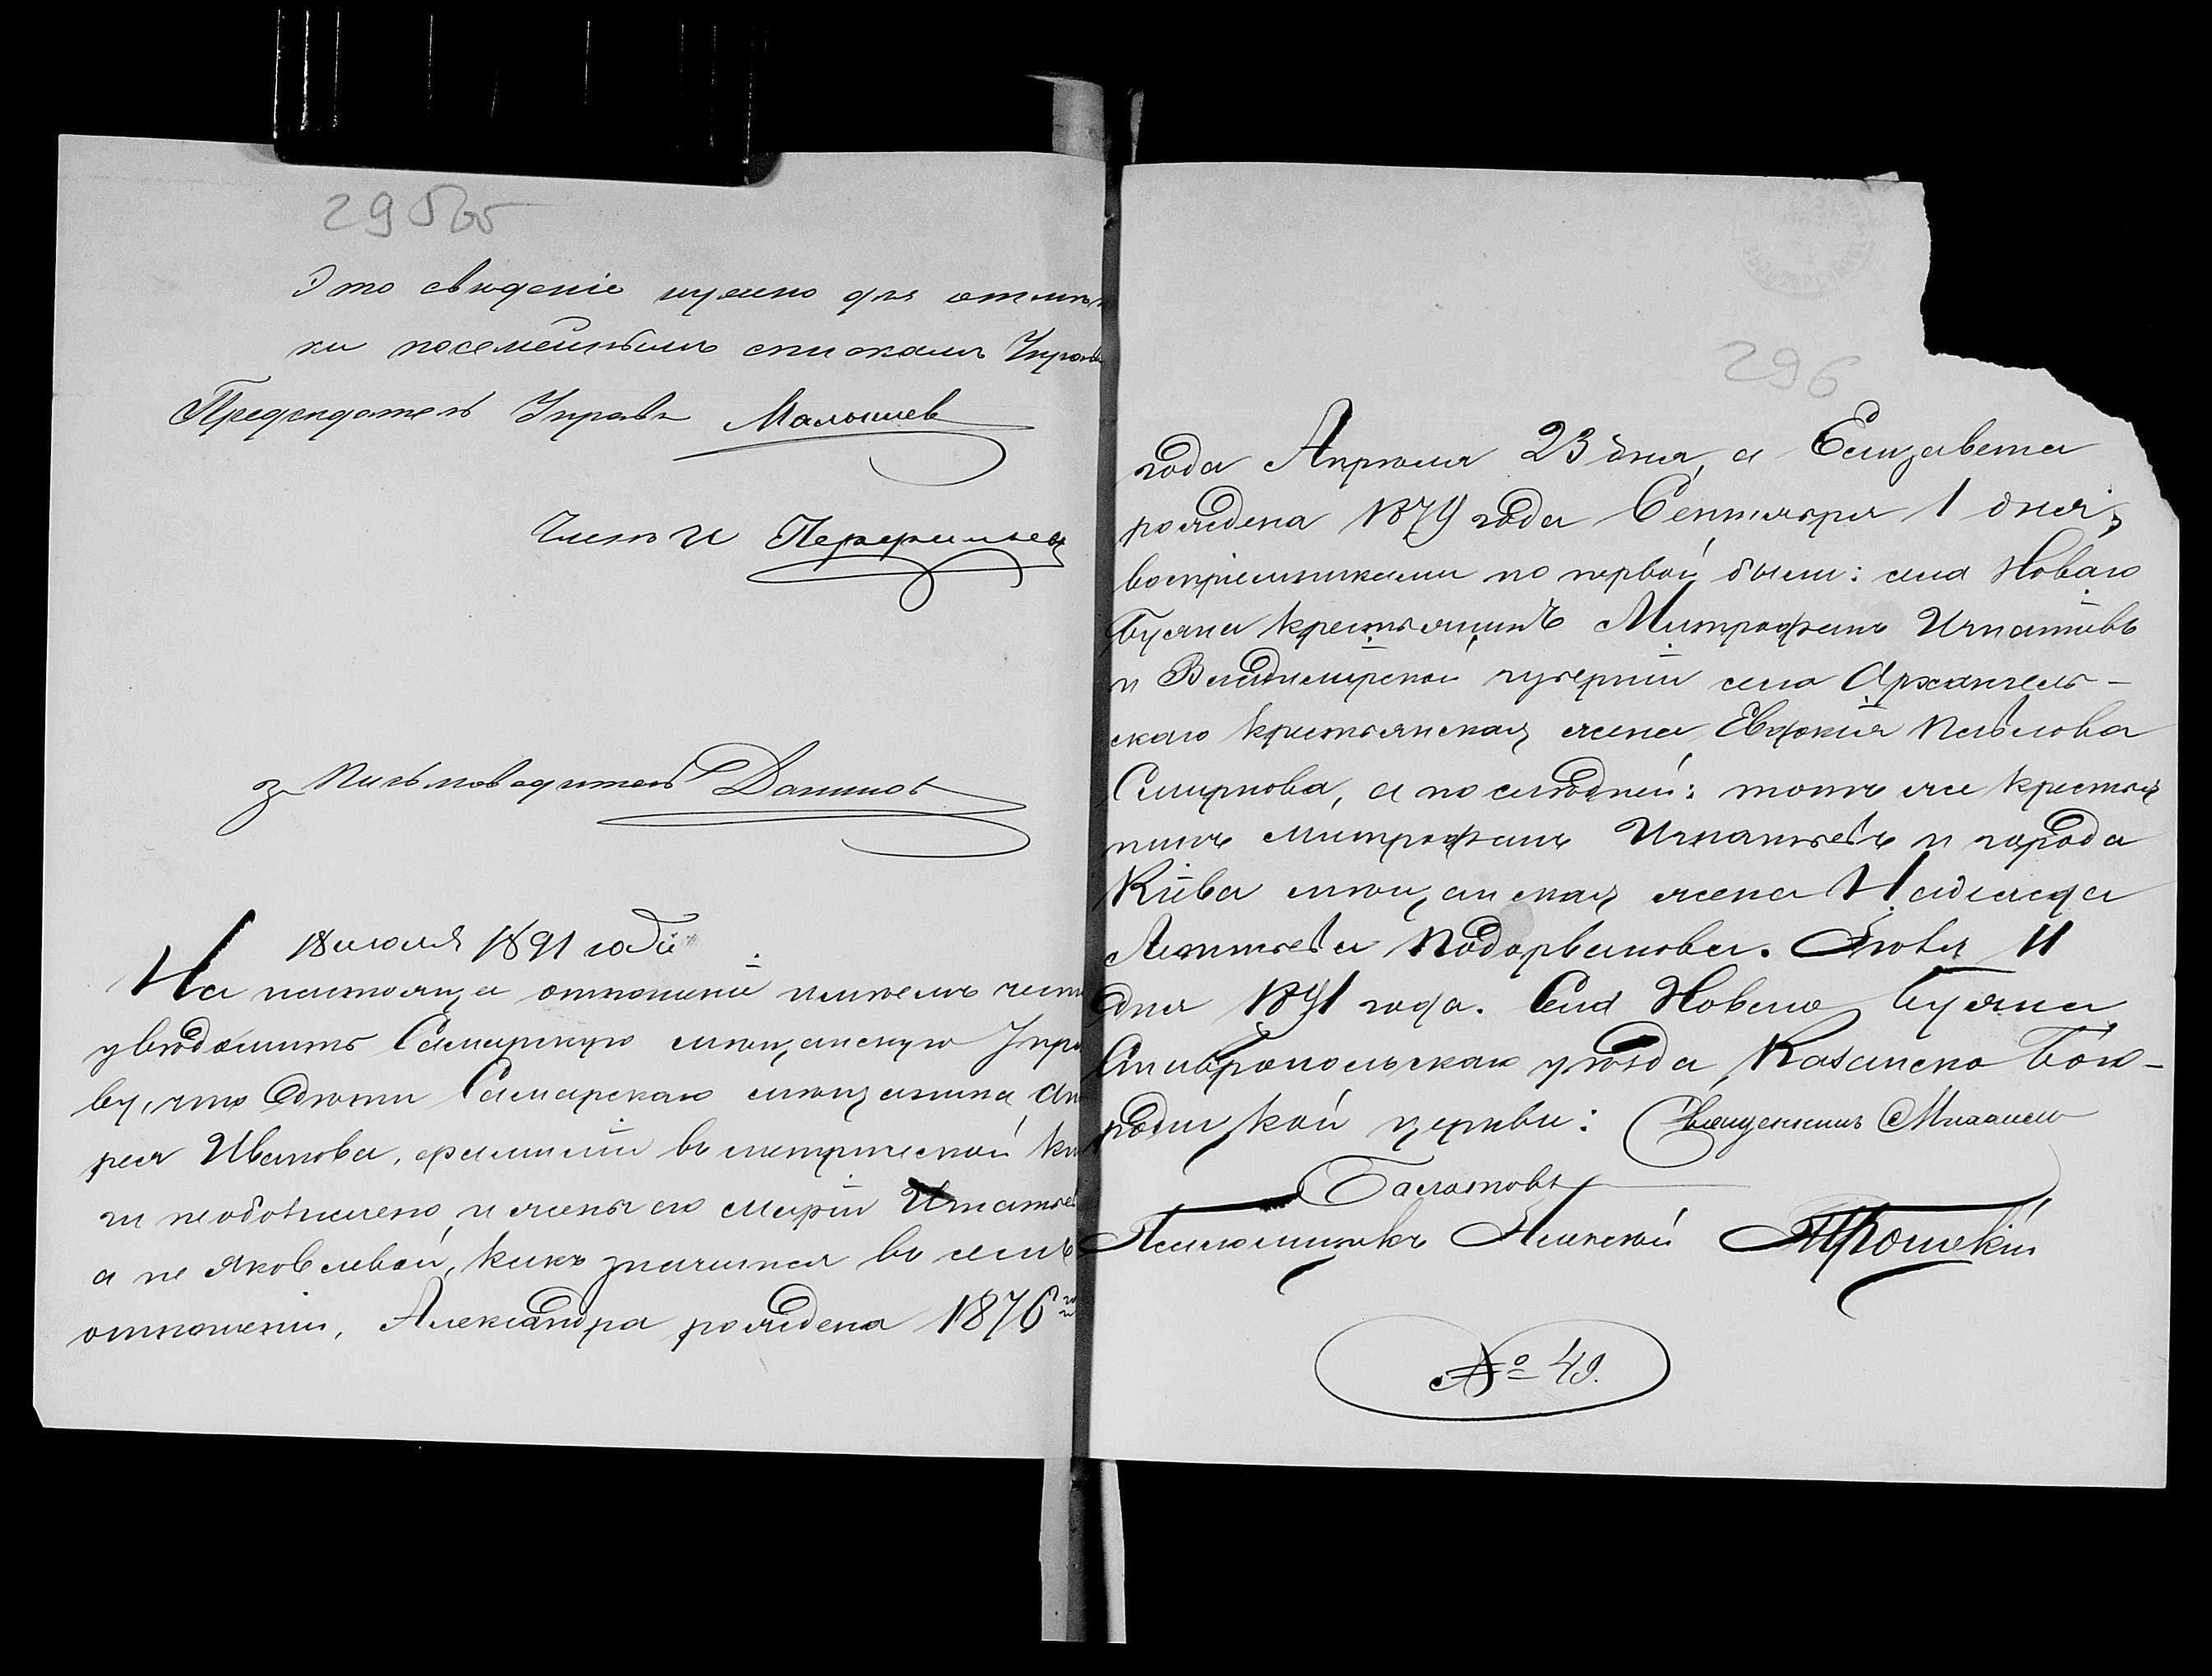 295об
Это сведеніе нужно для отмет
ки посемейнымъ спискамъ Управы
Председатель Управы Малышев
Членъ И
за Письмоводителя Данилов
18 іюля 1891 года
На настоящее отношеніе имѣемъ честь
увѣдомить Самарскую мѣщанскую Упра
ву, что дѣти Самарскаго мѣщанина Анд
рея Иванова, фамиліи въ метрической кни
ги необозначено, и жены его Маріи Игнатьев
а не Яковлевой, какъ значится въ семъ
отношеніи, Александра рождена 1876 го
296
года Апрѣля 23 дня, а Елизавета
рождена 1879 года Сентября 1 дня;
воспріемниками по первой были: села Новаго
Буяна крестьянинъ Митрофанъ Игнатіевъ
и Владимирской губерніи села Архангель-
скаго крестьянская жена Евдокія Павлова
Смирнова, а по слѣдней: тотъ же крестья
нинъ Митрофанъ Игнатьевъ и города
Кіева мѣщанская жена Надежда
Леонтьева Подорванова. 11
дня 1891 года. Села Новаго Буяна
Ставропольскаго уѣзда, Казанско Бого-
родицкой церкви: Священникъ Михаилъ
Псаломщикъ
№ 49.